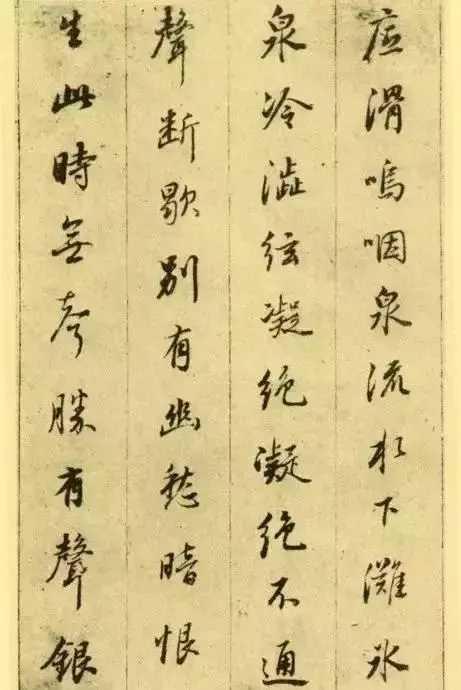 底滑嗚咽泉流水下灘水
泉冷澁絃凝絶凝絶不通
聲断歇別有幽愁暗恨
生此時無聲勝有聲銀